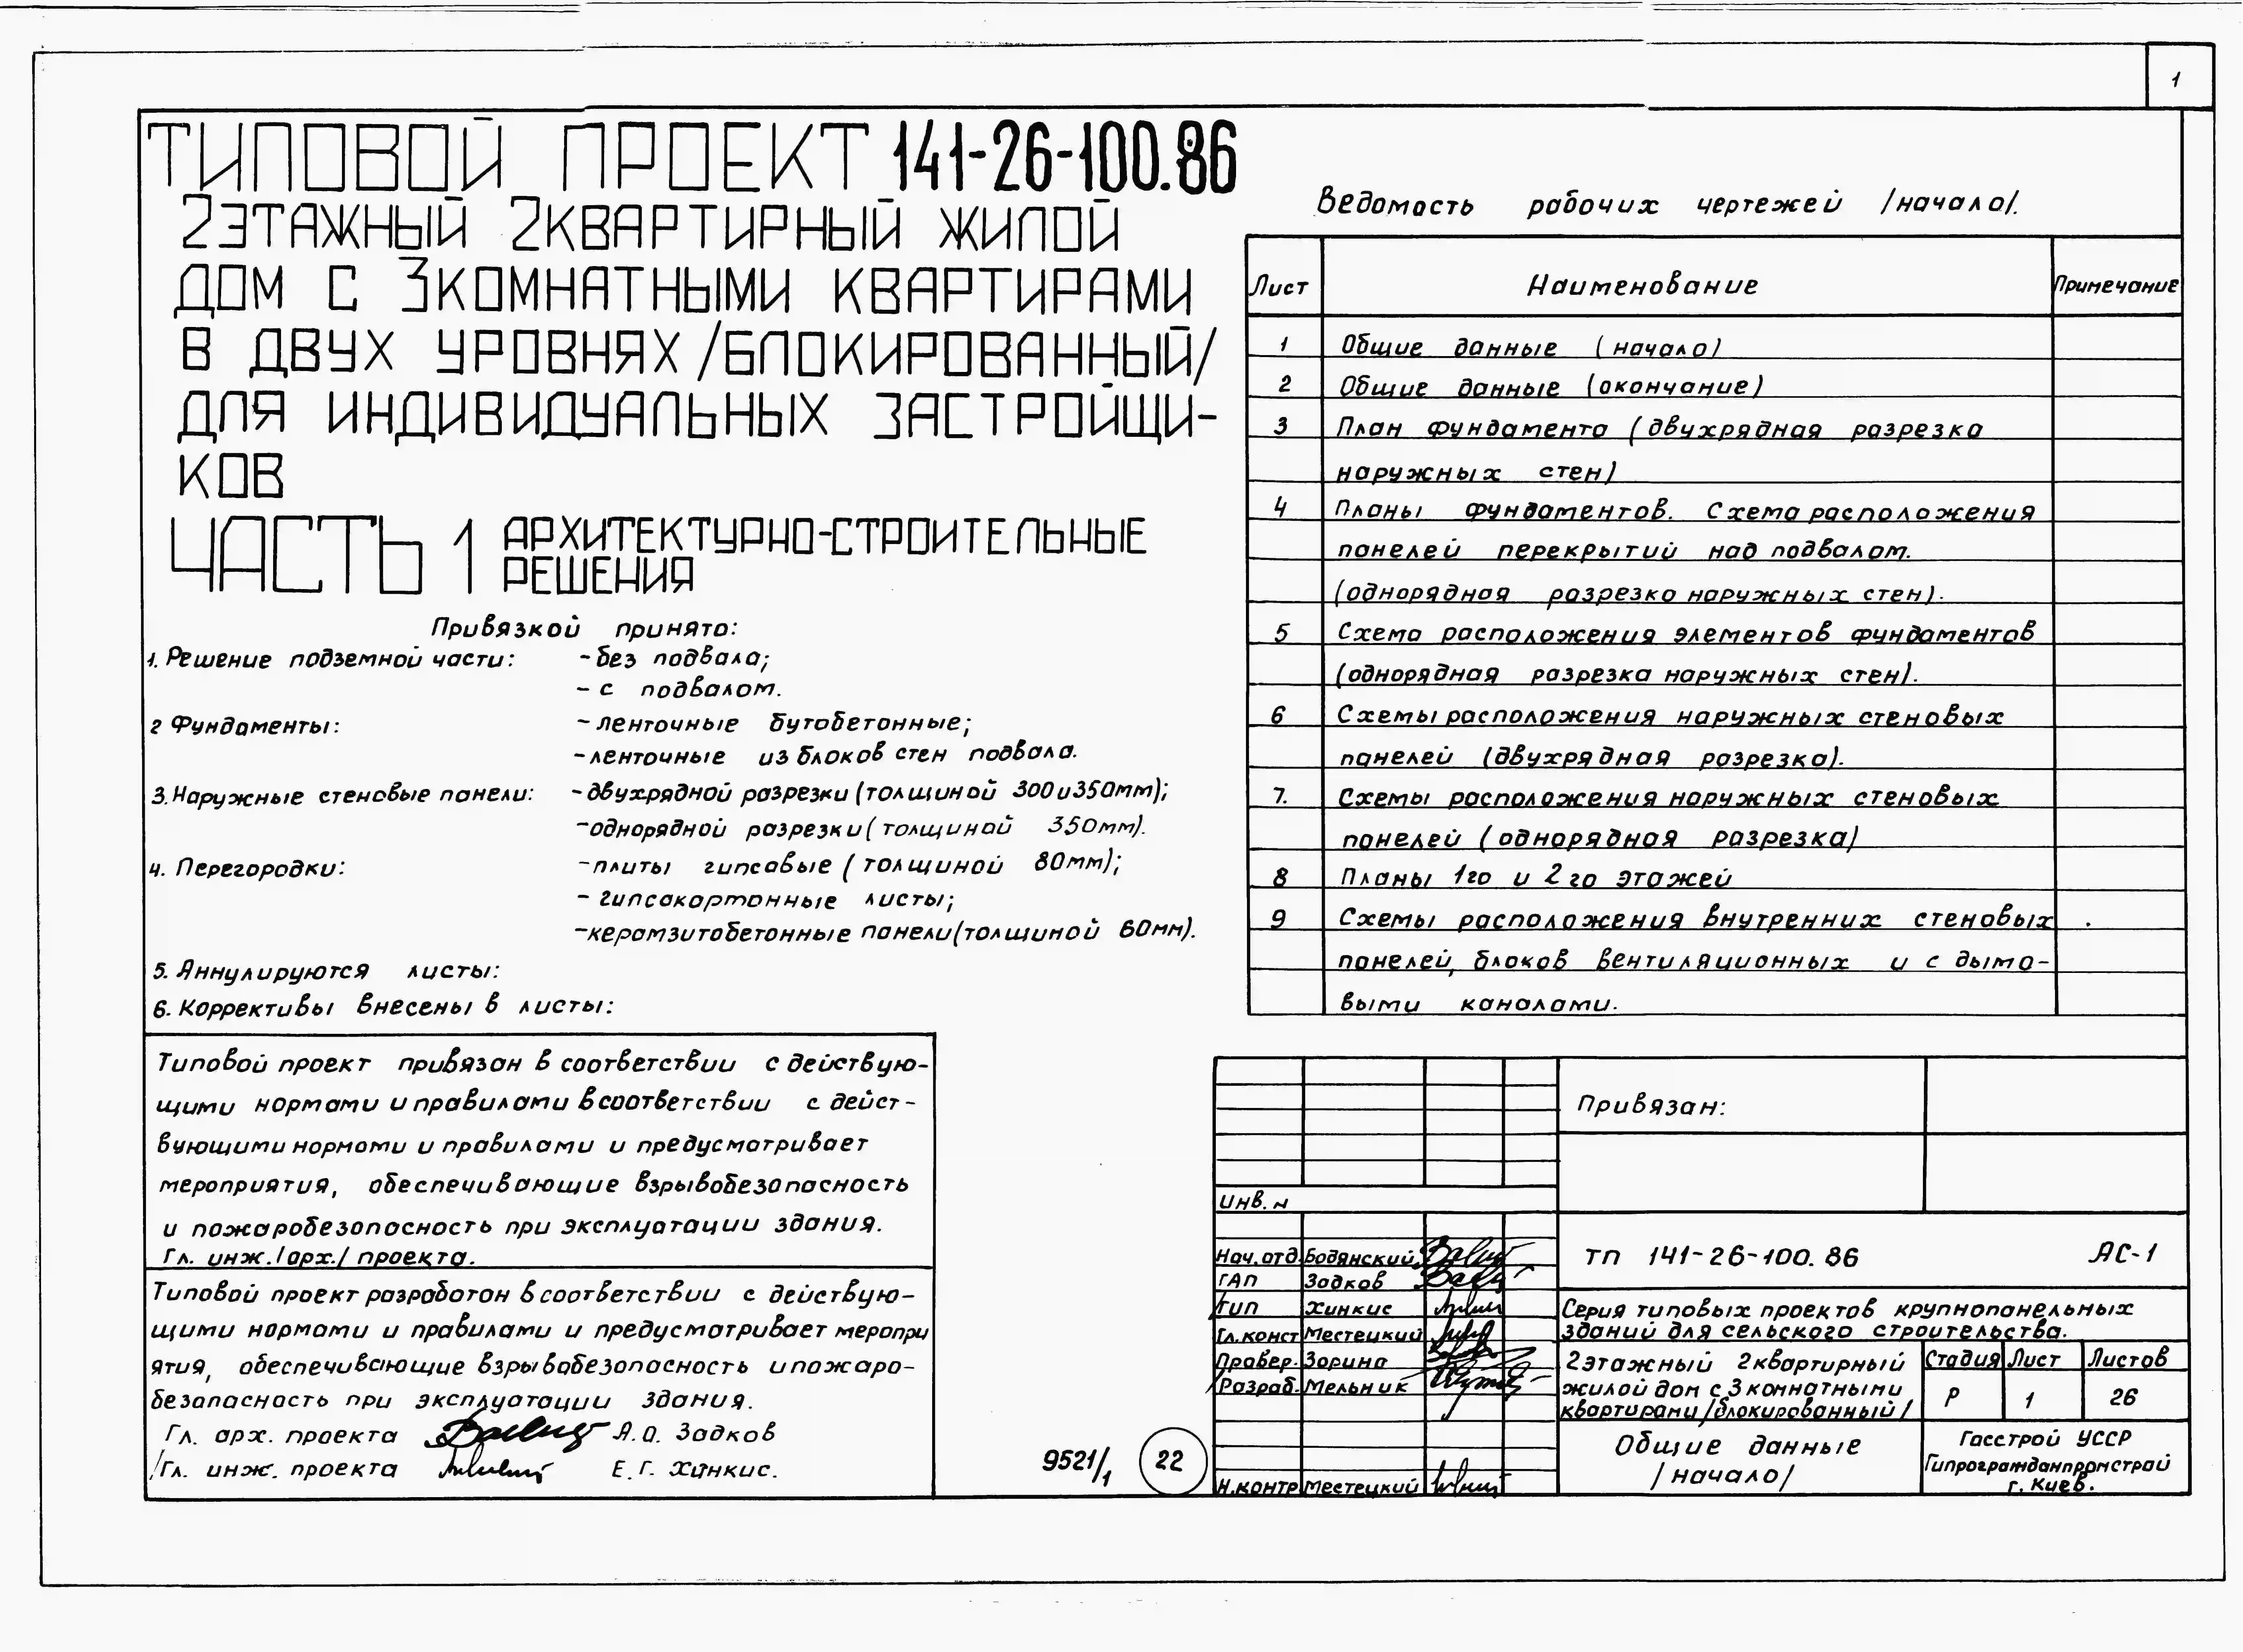 1
ТИПОВОЙ ПРОЕКТ 141-26-100.86
2ЭТАЖНЫЙ 2КВАРТИРНЫЙ ЖИЛОЙ
ДОМ С 3КОМНАТНЫМИ КВАРТИРАМИ
В ДВУХ УРОВНЯХ /БЛОКИРОВАННЫЙ/
ДЛЯ ИНДИВИДУАЛЬНЫХ ЗАСТРОЙЩИ-
КОВ
ЧАСТЬ 1 АРХИТЕКТУРНО-СТРОИТЕЛЬНЫЕ
РЕШЕНИЯ
Привязкой принято:
1. Решение подземной части: - без подвала;
- с подвалом.
2 Фундаменты: - ленточные бутобетонные;
- ленточные из блоков стен подвала.
3. Наружные стеновые панели: - двухрядной разрезки (толщиной 300 и 350мм);
- однорядной разрезки (толщиной 350мм).
4. Перегородки: - плиты гипсовые (толщиной 80мм);
- гипсакартонные листы;
- керамзитобетонные панели (толщиной 60мм).
5. Аннулируются листы:
6. Коррективы внесены в листы:
Типовой проект привязан в соответствии с действую-
щими нормами и правилами в соответствии с дейст-
вующими нормами и правилами и предусматривает
мероприятия, обеспечивающие взрывобезопасность
и пожаробезопасность при эксплуатации здания.
Гл. инж. /арх./ проекта.
Типовой проект разработан в соответствии с действую-
щими нормами и правилами и предусматривает меропри
ятия, обеспечивающие взрывобезопасность и пожаро-
безопасность при эксплуатации здания.
Гл. арх. проекта А.О. Задков
Гл. инж. проекта Е.Г. Хинкис.
9521/1 22
Ведомость рабочих чертежей /начало/.
Лист Наименование Примечание
1 Общие данные (начало)
2 Общие данные (окончание)
3 План фундамента (двухрядная разрезка
наружных стен)
4 Планы фундаментов. Схема расположения
панелей перекрытий над подвалом.
(однорядная разрезка наружных стен).
5 Схема расположения элементов фундаментов
(однорядная разрезка наружных стен).
6 Схемы расположения наружных стеновых
панелей (двухрядная разрезка).
7. Схемы расположения наружных стеновых
панелей (однорядная разрезка)
8 Планы 1го и 2го этажей
9 Схемы расположения внутренних стеновых
панелей, блоков вентиляционных и с дымо-
выми каналами.
Привязан:
Инв. н
Нач. отд. Бодянский
ГАП Задков
ГИП Хинкис
Гл. конст Местецкий
Провер. Зорина
Разраб. Мельник
Н. контр Местецкий
ТП 141-26-100.86 АС-1
Серия типовых проектов крупнопанельных
зданий для сельского строительства.
2этажный 2квартирный
жилой дом с 3 комнатными
квартирами /блокированный/
Стадия Лист Листов
Р 1 26
Общие данные
/начало/
Госстрой УССР
Гипрогражданпромстрой
г. Киев.